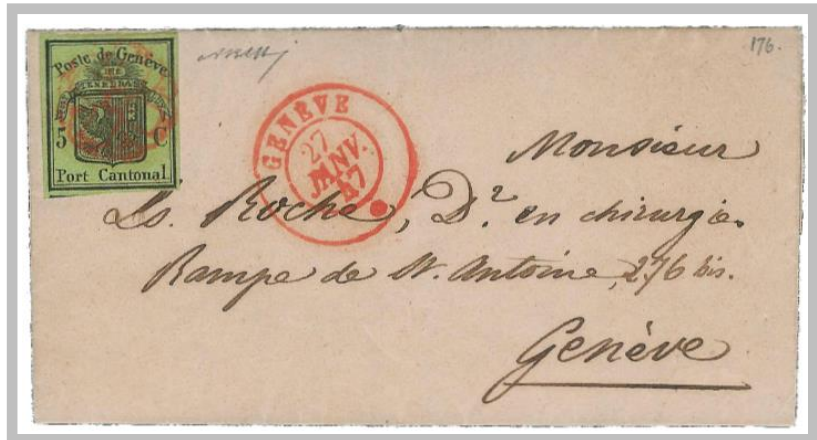 176.
Poste de Genève
POST TENEBRAS LUX
5 C
Port Cantonal
GENÈVE
27
JANV.
47
Monsieur
Ls. Roche, Dr. en chirurgie.
Rampe de St. Antoine, 276 bis.
Genève